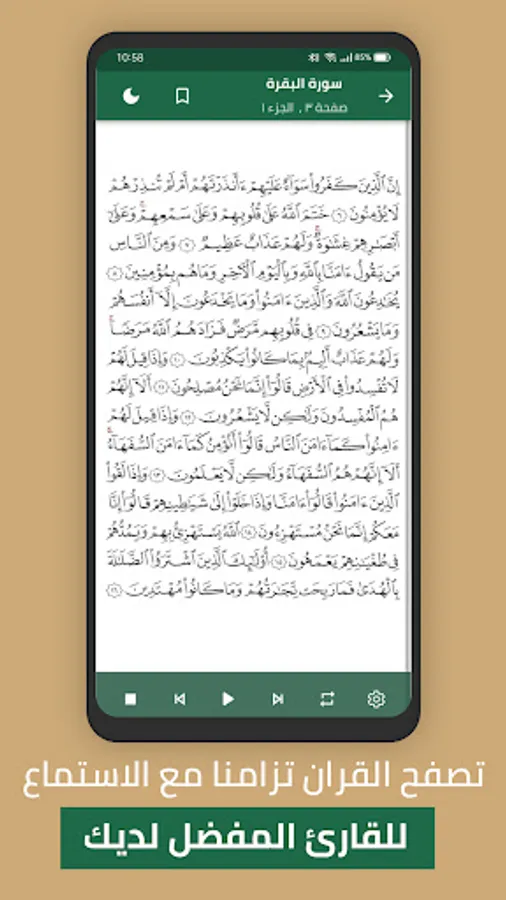 10:58
85%
سورة البقرة
صفحة ٣ , الجزء ١
إِنَّ الَّذِينَ كَفَرُوا سَوَاءٌ عَلَيْهِمْ ءَأَنذَرْتَهُمْ أَمْ لَمْ تُنذِرْهُمْ
لَا يُؤْمِنُونَ ٦ خَتَمَ اللَّهُ عَلَىٰ قُلُوبِهِمْ وَعَلَىٰ سَمْعِهِمْ وَعَلَىٰ
أَبْصَٰرِهِمْ غِشَٰوَةٌ وَلَهُمْ عَذَابٌ عَظِيمٌ ٧ وَمِنَ النَّاسِ
مَن يَقُولُ ءَامَنَّا بِاللَّهِ وَبِالْيَوْمِ الْآخِرِ وَمَا هُم بِمُؤْمِنِينَ ٨
يُخَٰدِعُونَ اللَّهَ وَالَّذِينَ ءَامَنُوا وَمَا يَخْدَعُونَ إِلَّا أَنفُسَهُمْ
وَمَا يَشْعُرُونَ ٩ فِي قُلُوبِهِم مَّرَضٌ فَزَادَهُمُ اللَّهُ مَرَضًا
وَلَهُمْ عَذَابٌ أَلِيمٌ بِمَا كَانُوا يَكْذِبُونَ ١٠ وَإِذَا قِيلَ لَهُمْ
لَا تُفْسِدُوا فِي الْأَرْضِ قَالُوا إِنَّمَا نَحْنُ مُصْلِحُونَ ١١ أَلَا إِنَّهُمْ
هُمُ الْمُفْسِدُونَ وَلَٰكِن لَّا يَشْعُرُونَ ١٢ وَإِذَا قِيلَ لَهُمْ
ءَامِنُوا كَمَا ءَامَنَ النَّاسُ قَالُوا أَنُؤْمِنُ كَمَا ءَامَنَ السُّفَهَاءُ
أَلَا إِنَّهُمْ هُمُ السُّفَهَاءُ وَلَٰكِن لَّا يَعْلَمُونَ ١٣ وَإِذَا لَقُوا
الَّذِينَ ءَامَنُوا قَالُوا ءَامَنَّا وَإِذَا خَلَوْا إِلَىٰ شَيَٰطِينِهِمْ قَالُوا إِنَّا
مَعَكُمْ إِنَّمَا نَحْنُ مُسْتَهْزِءُونَ ١٤ اللَّهُ يَسْتَهْزِئُ بِهِمْ وَيَمُدُّهُمْ
فِي طُغْيَٰنِهِمْ يَعْمَهُونَ ١٥ أُولَٰئِكَ الَّذِينَ اشْتَرَوُا الضَّلَٰلَةَ
بِالْهُدَىٰ فَمَا رَبِحَت تِّجَٰرَتُهُمْ وَمَا كَانُوا مُهْتَدِينَ ١٦
تصفح القران تزامنا مع الاستماع
للقارئ المفضل لديك